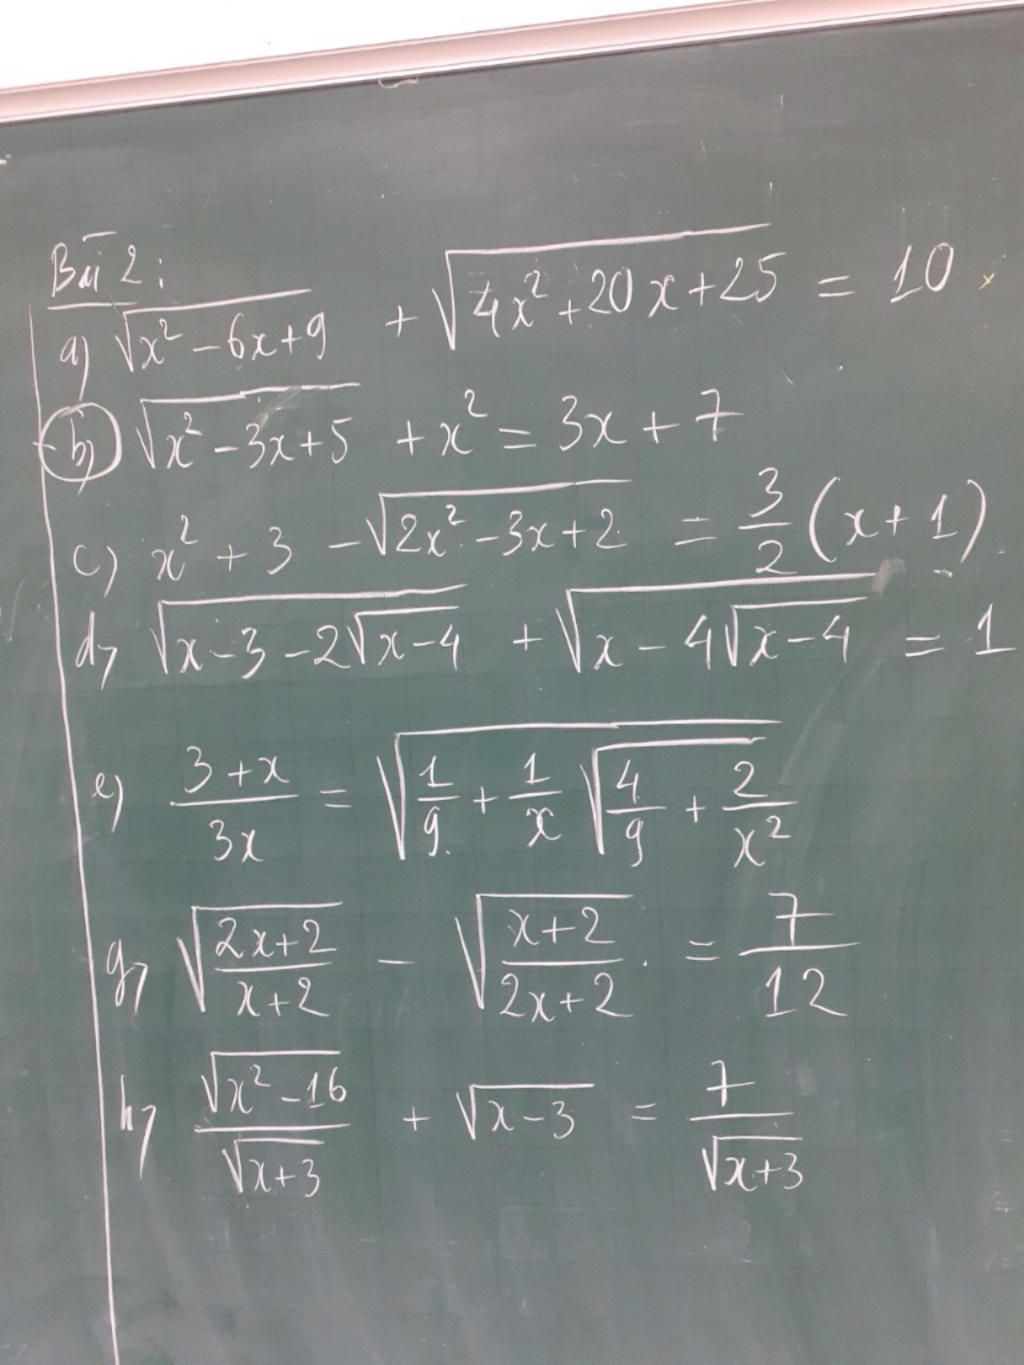 Bài 2:
a) √(x² - 6x + 9) + √(4x² + 20x + 25) = 10
b) √(x² - 3x + 5) + x² = 3x + 7
c) x² + 3 - √(2x² - 3x + 2) = 3/2 (x + 1)
d) √(x - 3 - 2√(x - 4)) + √(x - 4√(x - 4)) = 1
e) (3 + x)/(3x) = √(1/9 + 1/x √(4/9 + 2/x²))
g) √((2x + 2)/(x + 2)) - √((x + 2)/(2x + 2)) = 7/12
h) √(x² - 16)/√(x + 3) + √(x - 3) = 7/√(x + 3)